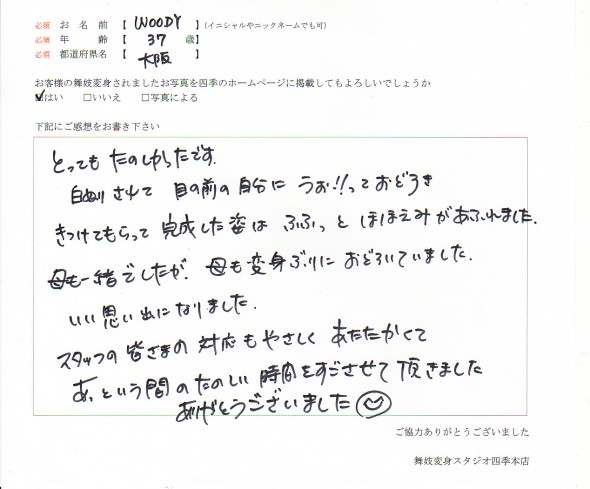 必須 お名前 【 WOODY 】(イニシャルやニックネームでも可)
必須 年齢 【 37 歳】
必須 都道府県名 【 大阪 】
お客様の舞妓変身されましたお写真を四季のホームページに掲載してもよろしいでしょうか
☑はい □いいえ □写真による
下記にご感想をお書き下さい
とっても たのしかったです.
白ぬりされて 目の前の自分に うぉ!!っておどろき
きつけてもらって 完成した姿は ふふっと ほほえみがあふれました.
母も一緒でしたが. 母も変身ぶりに おどろいていました.
いい思い出になりました.
スタッフの皆さまの対応もやさしく あたたかくて
あっという間のたのしい時間をすごさせて頂きました
ありがとうございました
ご協力ありがとうございました
舞妓変身スタジオ四季本店